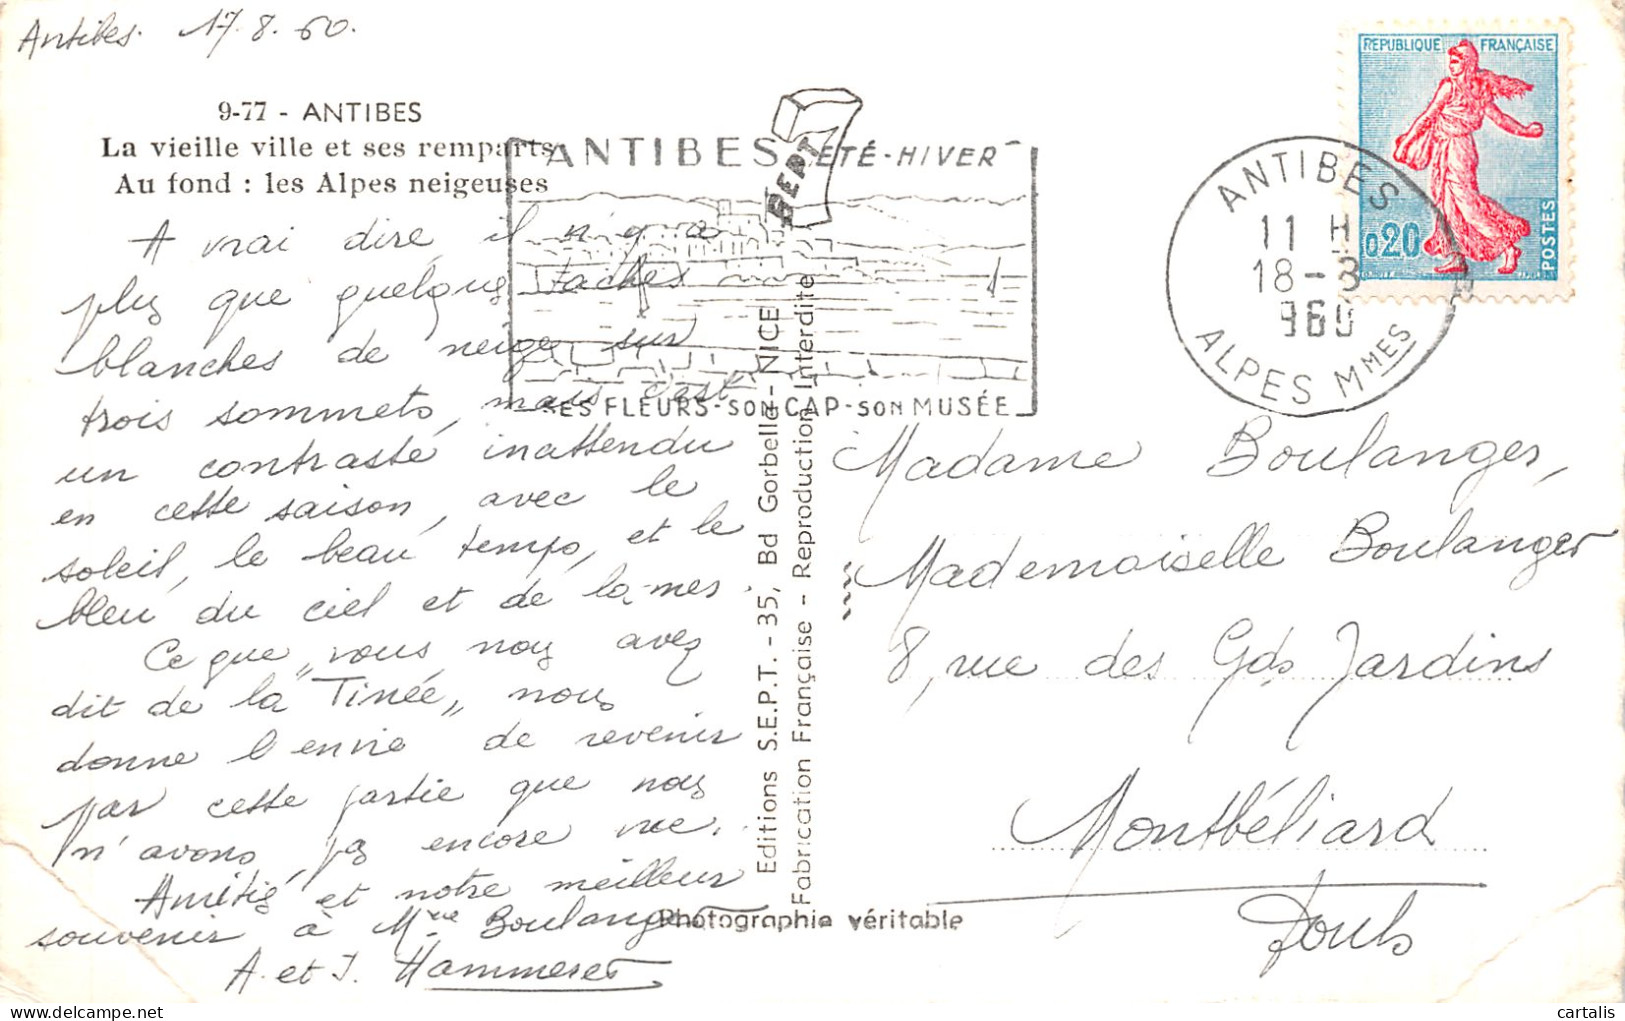 Antibes. 17.8.60.
9-77 - ANTIBES
La vieille ville et ses remparts
Au fond : les Alpes neigeuses
A vrai dire, il n'y a
plus que quelques taches
blanches de neige sur
trois sommets, mais c'est
un contraste inattendu
en cette saison, avec le
soleil, le beau temps, et le
bleu du ciel et de la mer.
Ce que „vous nous avez
dit de la Tinée„ nous
donne l'envie de revenir
par cette partie que nous
n'avons pas encore vue.
Amitiés et notre meilleur
souvenir à Mme Boulanger
A. et J. Hammerer
ANTIBES ÉTÉ-HIVER
SEPT
SES FLEURS-SON CAP-SON MUSÉE
Editions S.E.P.T. - 35, Bd Gorbella - NICE
Fabrication Française - Reproduction Interdite
Photographie véritable
REPUBLIQUE FRANÇAISE
0,20
POSTES
ANTIBES
11 H
18-8
960
ALPES MMES
Madame Boulanger,
Mademoiselle Boulanger
8, rue des Gds Jardins
Montbéliard
Doubs
cartalis